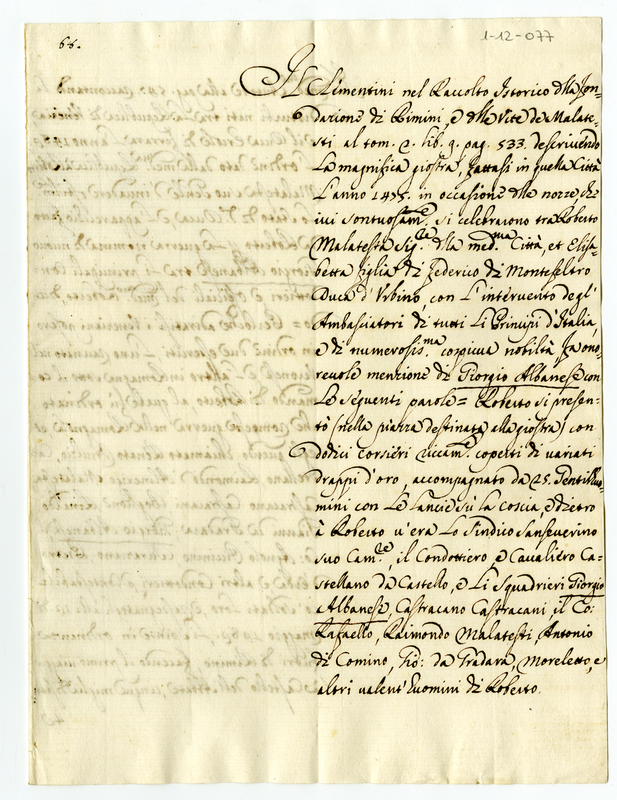 66.
1-12-077
Il Clementini nel Raccolto Istorico dlla Fon=
dazione di Rimini, e dlle Vite de Malate=
sti al tom. 2. lib. 9. pag. 533. descrivendo
La magnifica giostra, fattasi in quella Città
L'anno 1475. in occasione dlle nozze che
ivi sontuosam.e si celebrarono tra Roberto
Malatesta Sig.re dlla med.ma Città, et Elisa=
betta figlia di Federico di Montefeltro
Duca d'Urbino, con L'intervento degl'
Ambasciatori di tutti Li Principi d'Italia,
e di numerosis.ma, cospicua nobiltà, fa ono=
revole menzione di Giorgio Albanese con
Le seguenti parole = Roberto si presen=
tò (nella piazza destinata alla giostra) con
dodici corsieri riccam.e coperti di variati
drappi d'oro, accompagnato da 25. Gentilhuo=
mini con Le Lancie sù la coscia, e dietro
à Roberto v'era Lo Sindico Sanseverino
suo Cam.re, il Condottiero e Cavaliero Ca=
stellano da Castello, e Li Squadrieri Giorgio
Albanese, Castracano Castracani, il Co:
Rafaello, Raimondo Malatesti, Antonio
di Comino, Gio: da Gradara, Moreletto, e
altri valent'Huomini di Roberto.